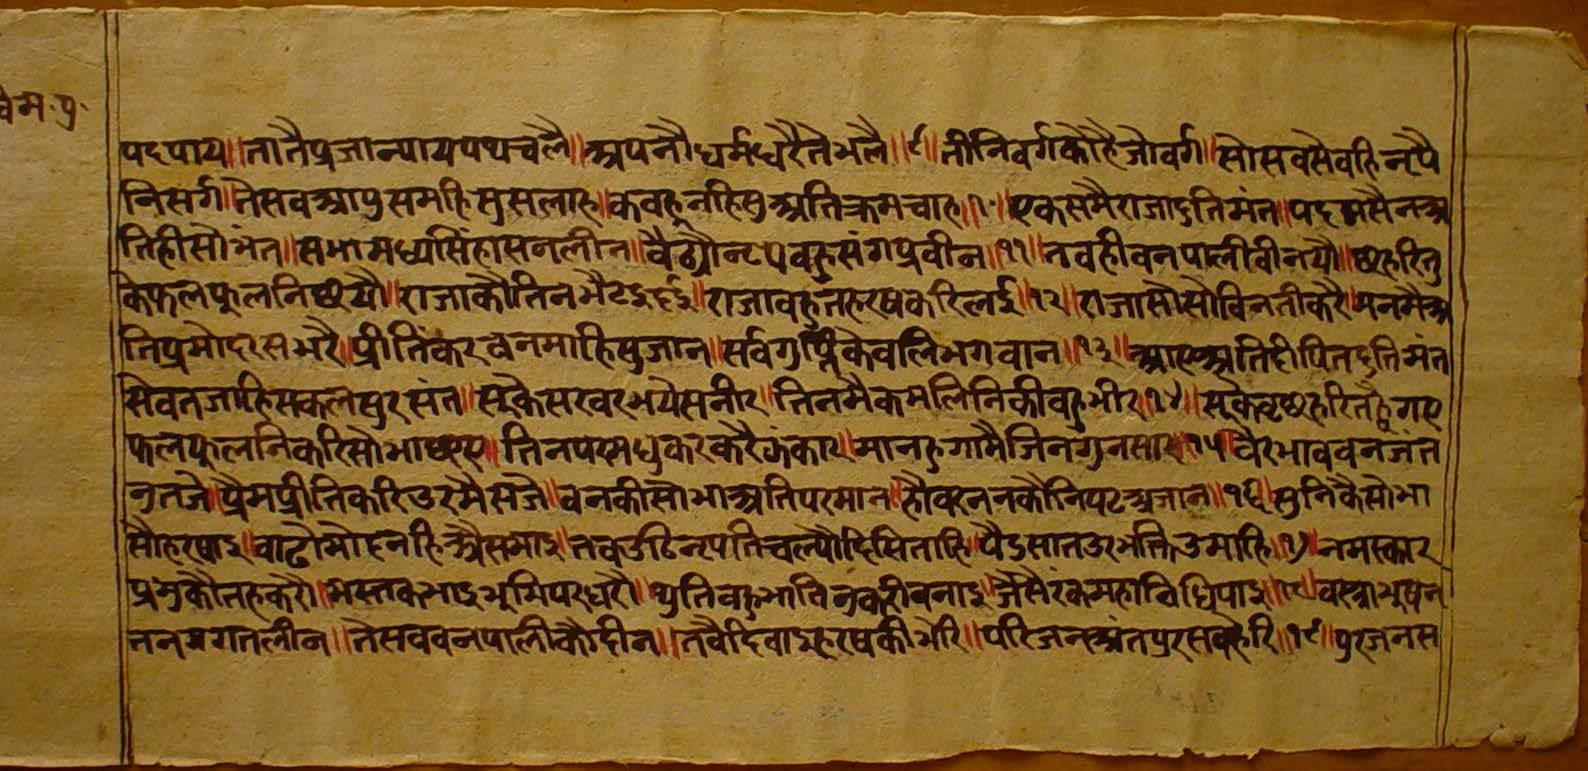 पद पाय॥तातै प्रजा न्याय पथ चलै॥अपनौ धर्म धरै ते भलै॥९॥तीनि वर्ग कौ है जो वर्ग॥सो सव सेवहि नृप पै
निसर्ग॥ते सव आपु समहि सु सलाह॥कवहू नहि सु अतिक्रम चाह॥१॰॥एक समै राजा दुतिमंत॥पदमसैन अ
तिही सोभंत॥सभा मध्य सिंहासन लीन॥वैठ्यौ नृप वहु संग प्रवीन॥११॥तवही वनपाली वीनयौ॥छह रितु
के फल फूलनि छयौ॥राजा कौ तिन भैट दई॥राजा वहुत हरष करि लई॥१२॥राजा सौ सौ विनती करै॥मन मै अ
ति प्रमोद रस भरै॥प्रीतिंकर वन माहि सुजान॥सर्वगुप्ति केवलि भगवान॥१३॥आए अति दीपति दुतिमंत
सेवत जाहि सकल सुर संत॥सूकै सरवर भये सनीर॥तिन मै कमलिनि की वहु भीर॥१४॥सूके वृछ हरित है गए
फल फूलनि करि सोभा छए॥तिन पर मधुकर करै झंकार॥मानहु गामै जिन गुन सार॥१५॥वैर भाव वन जंत
नु तजे॥प्रैम प्रीति करि उर मै सजे॥वन की सोभा अति परमान॥हौ वरनन कौ निपट अजान॥१६॥सुनि कै सोभा
सौ हरषाइ॥वाढो मोद नहि अैस माइ॥तव उठि नृपति चल्यौ दिसि ताहि॥पैड सात उर भक्ति उमाहि॥१७॥नमस्कार
प्रभु कौ तह करौ॥मस्तक भाइ भूमि पर धरौ॥थुति वहु भांति नु करी वनाइ॥जैसै रंक महा विधि पाइ॥१८॥वस्त्राभूषन
तन मगत लीन॥ते सव वनपाली कौ दीन॥तवै दिवाइ हरष की भेरि॥परिजन अंतपुर सव हेरि॥१९॥पुरजन स